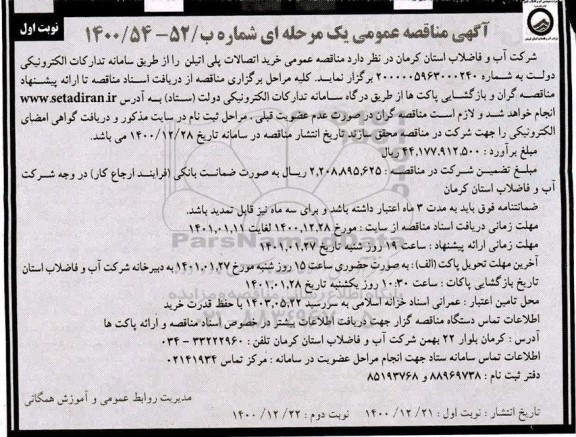 نوبت اول
آگهی مناقصه عمومی یک مرحله ای شماره ب/۵۲-۱۴۰۰/۵۴
شرکت آب و فاضلاب استان کرمان در نظر دارد مناقصه عمومی خرید اتصالات پلی اتیلن را از طریق سامانه تدارکات الکترونیکی
دولت به شماره ۲۰۰۰۰۰۵۹۶۳۰۰۰۲۴۰ برگزار نماید. کلیه مراحل برگزاری مناقصه از دریافت اسناد مناقصه تا ارائه پیشنهاد
مناقصه گران و بازگشایی پاکت ها از طریق درگاه سامانه تدارکات الکترونیکی دولت (ستاد) به آدرس www.setadiran.ir
انجام خواهد شد و لازم است مناقصه گران در صورت عدم عضویت قبلی ، مراحل ثبت نام در سایت مذکور و دریافت گواهی امضای
الکترونیکی را جهت شرکت در مناقصه محقق سازند تاریخ انتشار مناقصه در سامانه تاریخ ۱۴۰۰/۱۲/۲۸ می باشد.
مبلغ برآورد : ۴۴,۱۷۷,۹۱۲,۵۰۰ ریال
مبلغ تضمین شرکت در مناقصه : ۲,۲۰۸,۸۹۵,۶۲۵ ریال به صورت ضمانت بانکی (فرایند ارجاع کار) در وجه شرکت
آب و فاضلاب استان کرمان
ضمانتنامه فوق باید به مدت ۳ ماه اعتبار داشته باشد و برای سه ماه نیز قابل تمدید باشد.
مهلت زمانی دریافت اسناد مناقصه از سایت : مورخ ۱۴۰۰.۱۲.۲۸ لغایت ۱۴۰۱.۰۱.۱۱
مهلت زمانی ارائه پیشنهاد : ساعت ۱۹ روز شنبه تاریخ ۱۴۰۱.۰۱.۲۷
آخرین مهلت تحویل پاکت (الف) : به صورت حضوری ساعت ۱۵ روز شنبه مورخ ۱۴۰۱.۰۱.۲۷ به دبیرخانه شرکت آب و فاضلاب استان
تاریخ بازگشایی پاکات : ساعت ۱۰:۳۰ روز یکشنبه تاریخ ۱۴۰۱.۰۱.۲۸
محل تامین اعتبار : عمرانی اسناد خزانه اسلامی به سررسید ۱۴۰۳.۰۵.۲۲ با حفظ قدرت خرید
اطلاعات تماس دستگاه مناقصه گزار جهت دریافت اطلاعات بیشتر در خصوص اسناد مناقصه و ارائه پاکت ها
آدرس : کرمان بلوار ۲۲ بهمن شرکت آب و فاضلاب استان کرمان تلفن : ۳۳۲۲۲۹۶۰ - ۰۳۴
اطلاعات تماس سامانه ستاد جهت انجام مراحل عضویت در سامانه : مرکز تماس ۰۲۱۴۱۹۳۴
دفتر ثبت نام : ۸۸۹۶۹۷۳۸ و ۸۵۱۹۳۷۶۸
مدیریت روابط عمومی و آموزش همگانی
تاریخ انتشار : نوبت اول : ۱۴۰۰/۱۲/۲۱ نوبت دوم : ۱۴۰۰/۱۲/۲۲